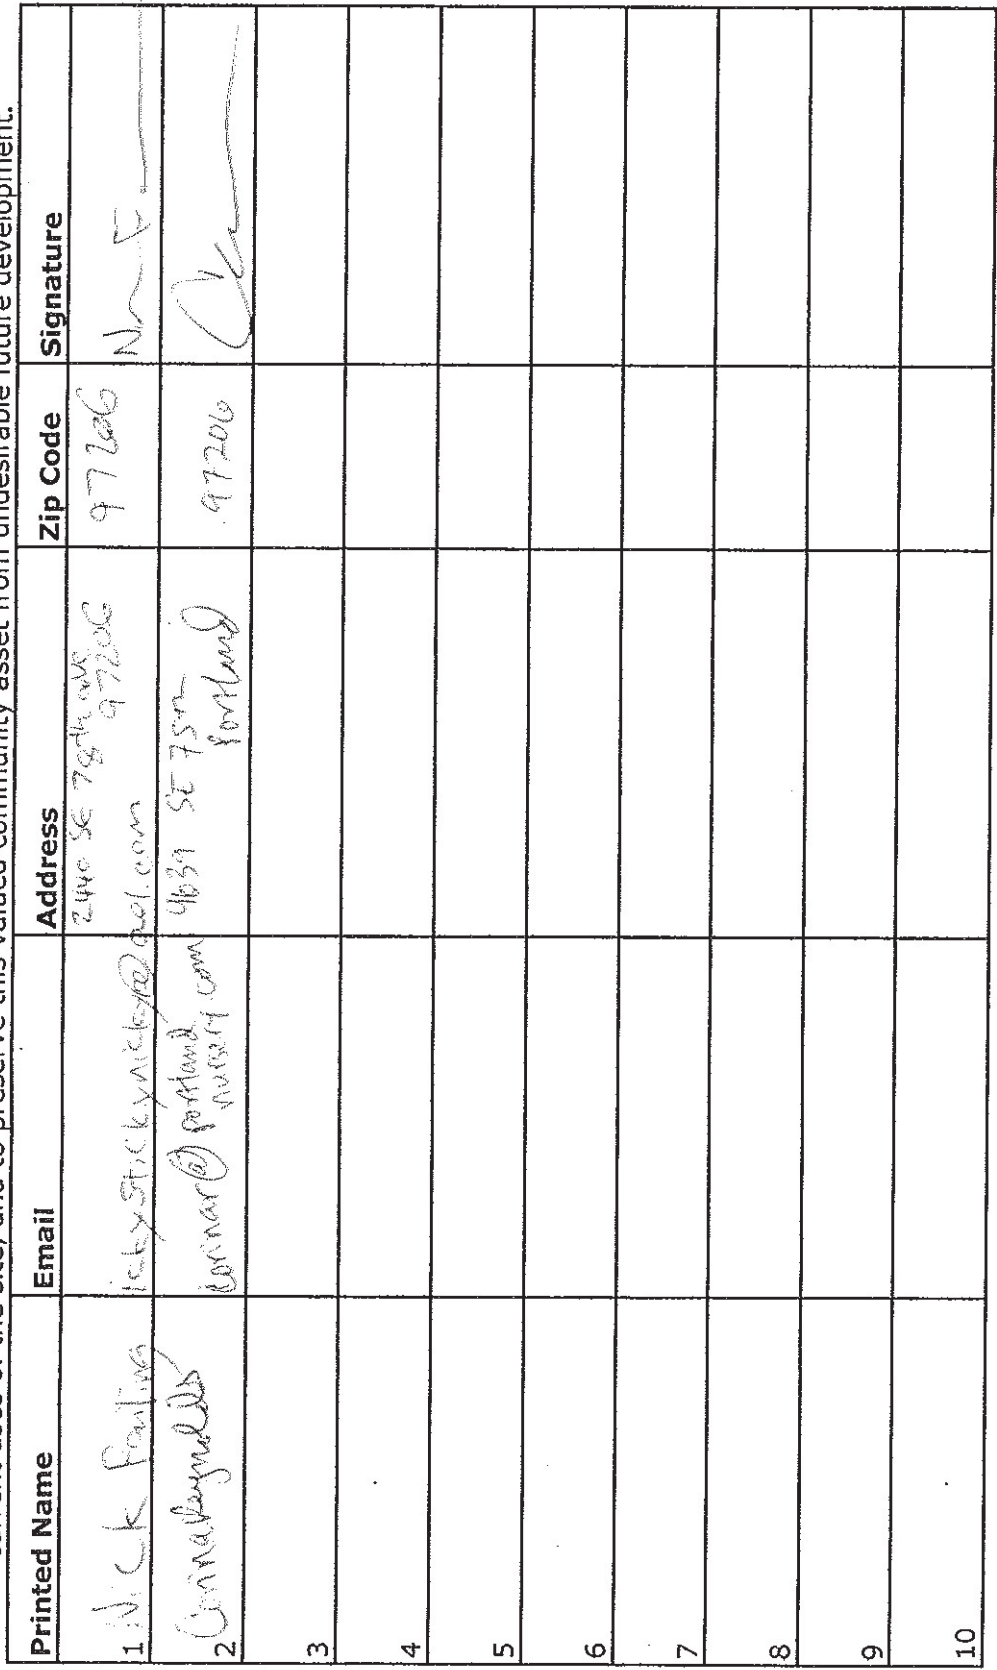 and to preserve this valued community asset from undesirable future development.
Printed Name Email Address Zip Code Signature
1 Nick Failing ickystickynicky@aol.com 2440 SE 78th ave 97206 97206
2 Corina Reynolds corinar@portland 4639 SE 75th 97206
nursery.com Portland
3
4
5
6
7
8
9
10